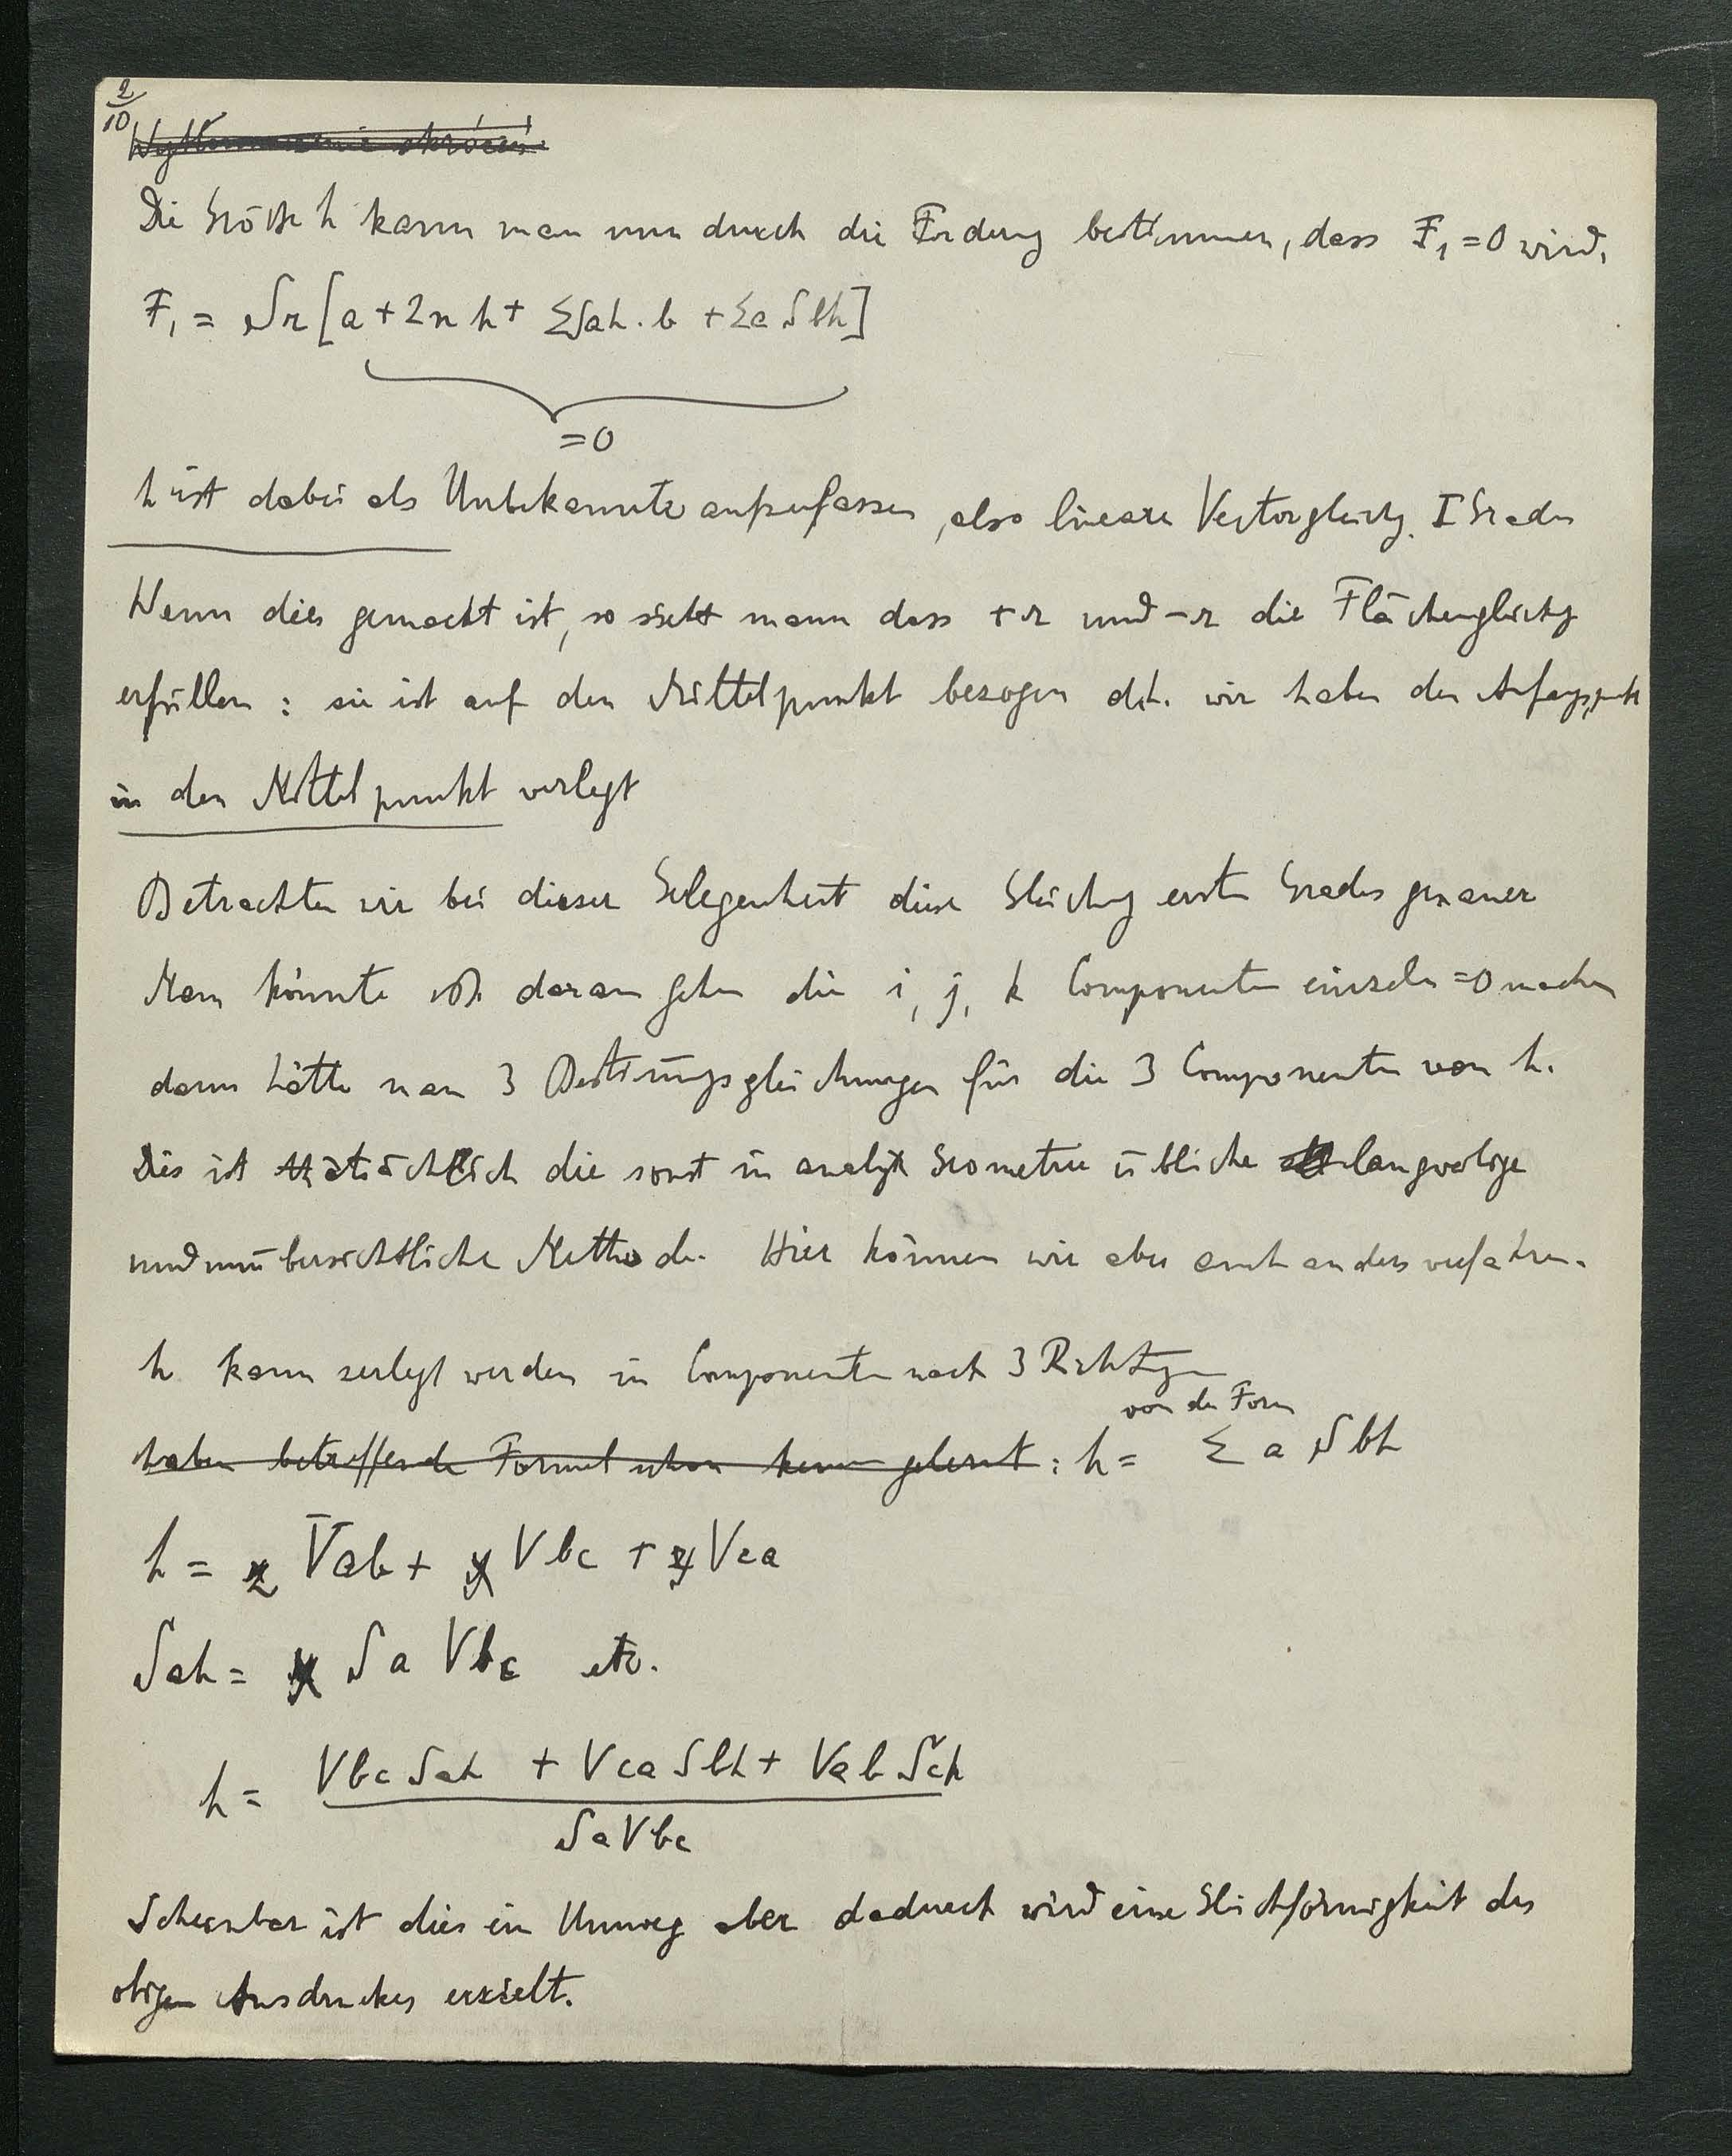 2/10
Wytłumaczenie skrócеń
Die Grösse h kann man nun durch die Forderung bestimmen, dass F₁ = 0 wird.
F₁ = Sr [a + 2n h + ΣSah . b + Σa Sbh]
= 0
h ist dabei als Unbekannte aufzufassen, also lineare Vectorgleichg. I Grades
Wenn dies gemacht ist, so sieht mann dass +r und -r die Flächengleichg
erfüllen : sie ist auf den Mittelpunkt bezogen d.h. wir haben den Anfangspunkt
in den Mittelpunkt verlegt
Betrachten wir bei dieser Gelegenheit diese Gleichung ersten Grades genauer
Man könnte daran gehen die i, j, k Componenten einzeln = 0 machen
dann hätte man 3 Bestimmgsgleichungen für die 3 Componenten von h.
Dies ist thatsächlich die sonst in analyt Geometrie übliche langweilige
und unübersichtliche Methode. Hier können wir aber auch anders verfahren.
h kann zerlegt werden in Componenten nach 3 Richtgen
von der Form
haben betreffende Formel schon kennen gelernt : h = Σ a Sbh
h = z Vab + x Vbc + y Vca
Sah = x Sa Vbc etc.
h = Vbc Sah + Vca Sbh + Vab Sch
SaVbc
Scheinbar ist dies ein Umweg aber dadurch wird eine Gleichförmigkeit des
obigen Ausdruckes erzielt.